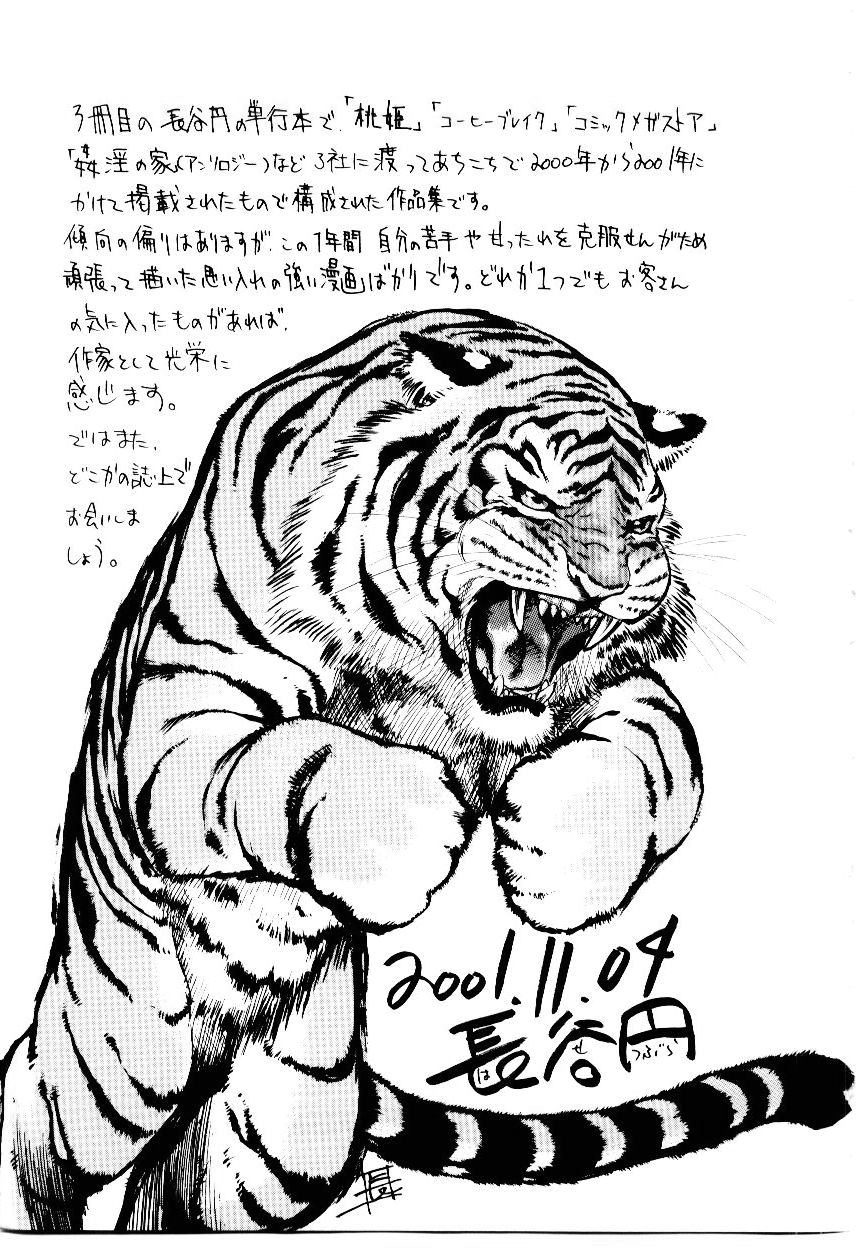 3冊目の長谷円の単行本で、「桃姫」「コーヒーブレイク」「コミックメガストア」
「姦淫の家」(アンソロジー)など3社に渡ってあちこちで2000年から2001年に
かけて掲載されたもので構成された作品集です。
傾向の偏りはありますが、この1年間 自分の苦手や甘ったれを克服せんがため
頑張って描いた思い入れの強い漫画ばかりです。どれか1つでもお客さん
の気に入ったものがあれば、
作家として光栄に
感じます。
ではまた、
どこかの誌上で
お会いしま
しょう。
2001.11.04
長谷円
は せ つぶら